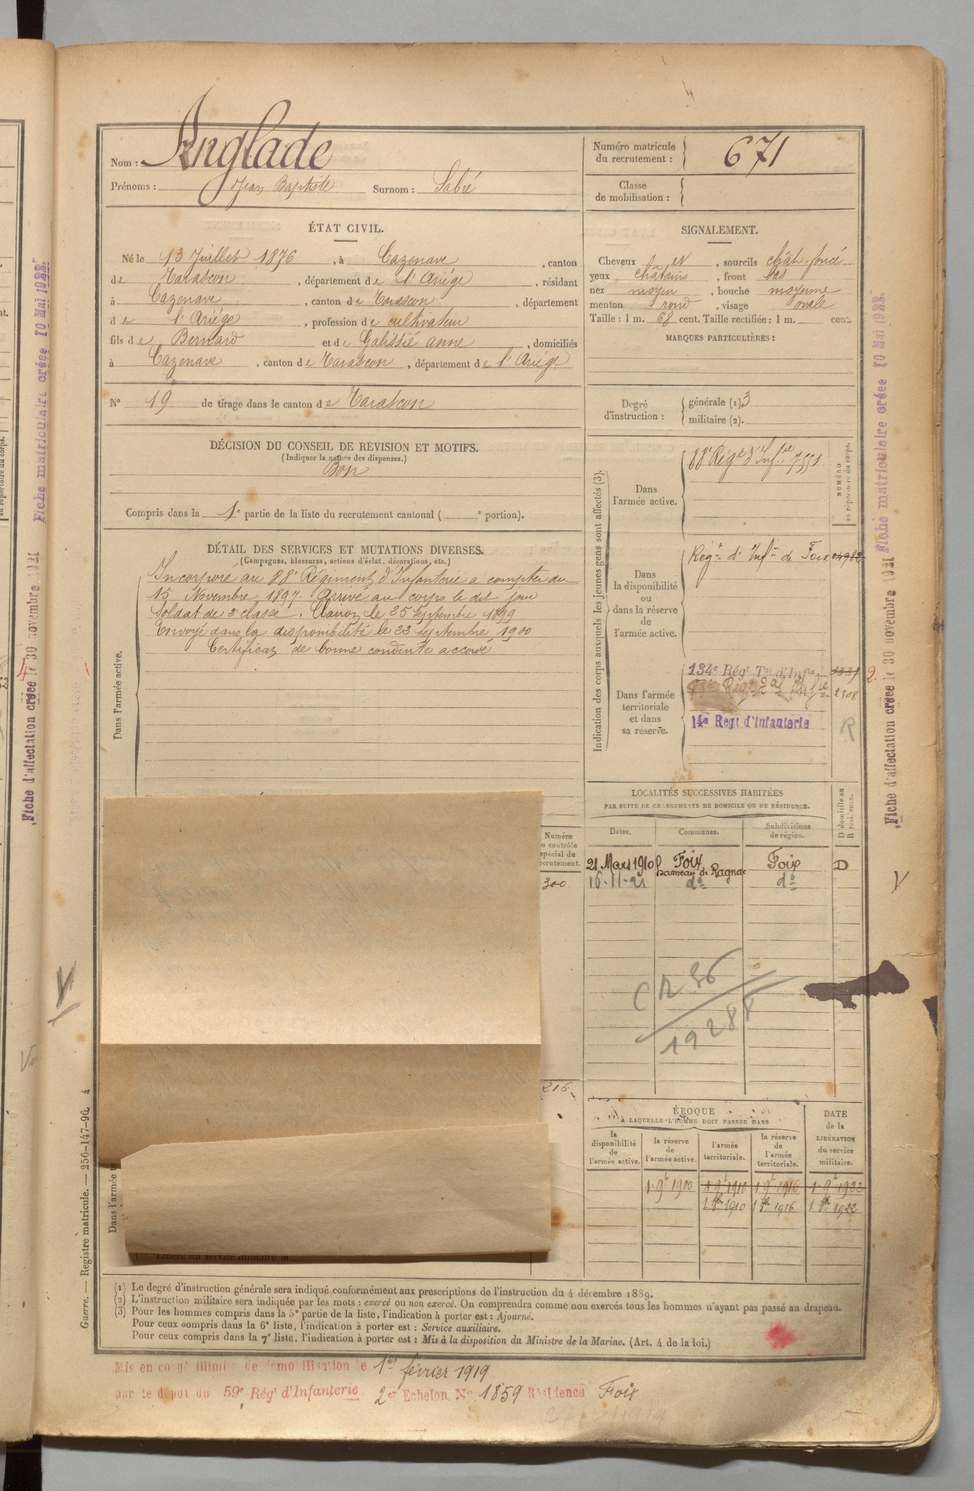 Nom : Anglade
Prénoms : Jean Baptiste Surnom : Labié
Numéro matricule du recrutement : 671
Classe de mobilisation :
ÉTAT CIVIL.
Né le 13 Juillet 1876, à Cazenave, canton
de Tarascon, département de l'Ariége, résidant
à Cazenave, canton de Tarascon, département
de l'Ariége, profession de cultivateur
fils de Bernard et de Galissié anne, domiciliés
à Cazenave, canton de Tarascon, département de l'Ariége
N° 19 de tirage dans le canton de Tarascon
SIGNALEMENT.
Cheveux et, sourcils chât. foncé
yeux châtains, front bas
nez moyen, bouche moyenne
menton rond, visage ovale
Taille : 1 m. 68 cent. Taille rectifiée : 1 m. cent.
MARQUES PARTICULIÈRES :
Degré d'instruction : générale (1). 3
militaire (2).
DÉCISION DU CONSEIL DE REVISION ET MOTIFS.
(Indiquer la nature des dispenses.)
Bon
Compris dans la 1e partie de la liste du recrutement cantonal ( e portion).
DÉTAIL DES SERVICES ET MUTATIONS DIVERSES.
(Campagnes, blessures, actions d'éclat, décorations, etc.)
Dans l'armée active.
Incorporé au 88e Régiment d'Infanterie a compter du
15 Novembre 1897. Arrivé au corps le dit jour
Soldat de 2e classe. Clairon le 25 Septembre 1899
Envoyé dans la disponibilité le 22 Septembre 1900
Certificat de bonne conduite accordé
Indication des corps auxquels les jeunes gens sont affectés (3).
NUMÉRO au répertoire du corps.
Dans l'armée active.
88e Régt d'Infie 7551
Dans la disponibilité ou dans la réserve de l'armée active.
Régt d'Infie de Foix
Dans l'armée territoriale et dans sa réserve.
134e Régt Tal d'Infie
2308
14e Regt d'Infanterie
R
LOCALITÉS SUCCESSIVES HABITÉES
PAR SUITE DE CHANGEMENTS DE DOMICILE OU DE RÉSIDENCE.
Dates. Communes. Subdivisions de région. D domicile ou R résidence.
21 Mars 1910 Foix hameau de Ragnac Foix D
16-11-21 do do
Numéro au contrôle spécial du recrutement.
300
216
C R 36
19288
ÉPOQUE
A LAQUELLE L'HOMME DOIT PASSER DANS
la disponibilité de l'armée active. la réserve de l'armée active. l'armée territoriale. la réserve de l'armée territoriale. DATE de la LIBÉRATION du service militaire.
1 9e 1900 1 9e 1910 1 9e 1916 1 9e 1922
1 8e 1910 1 8e 1916 1 8e 1922
Dans l'armée
(1) Le degré d'instruction générale sera indiqué conformément aux prescriptions de l'instruction du 4 décembre 1889.
(2) L'instruction militaire sera indiquée par les mots : exercé ou non exercé. On comprendra comme non exercés tous les hommes n'ayant pas passé au drapeau.
(3) Pour les hommes compris dans la 5e partie de la liste, l'indication à porter est : Ajourné.
Pour ceux compris dans la 6e liste, l'indication à porter est : Service auxiliaire.
Pour ceux compris dans la 7e liste, l'indication à porter est : Mis à la disposition du Ministre de la Marine. (Art. 4 de la loi.)
Mis en congé illimité de démobilisation le 1er février 1919
par le dépôt du 59e Régt d'Infanterie 2er Echelon No 1859 Résidence Foix
Guerre. — Registre matricule. — 256-147-96.
Fiche matriculaire créée 10 Mai 1922.
Fiche d'affectation créée le 30 novembre 1921
Fiche matriculaire créée 10 Mai 1922.
Fiche d'affectation créée le 30 novembre 1921